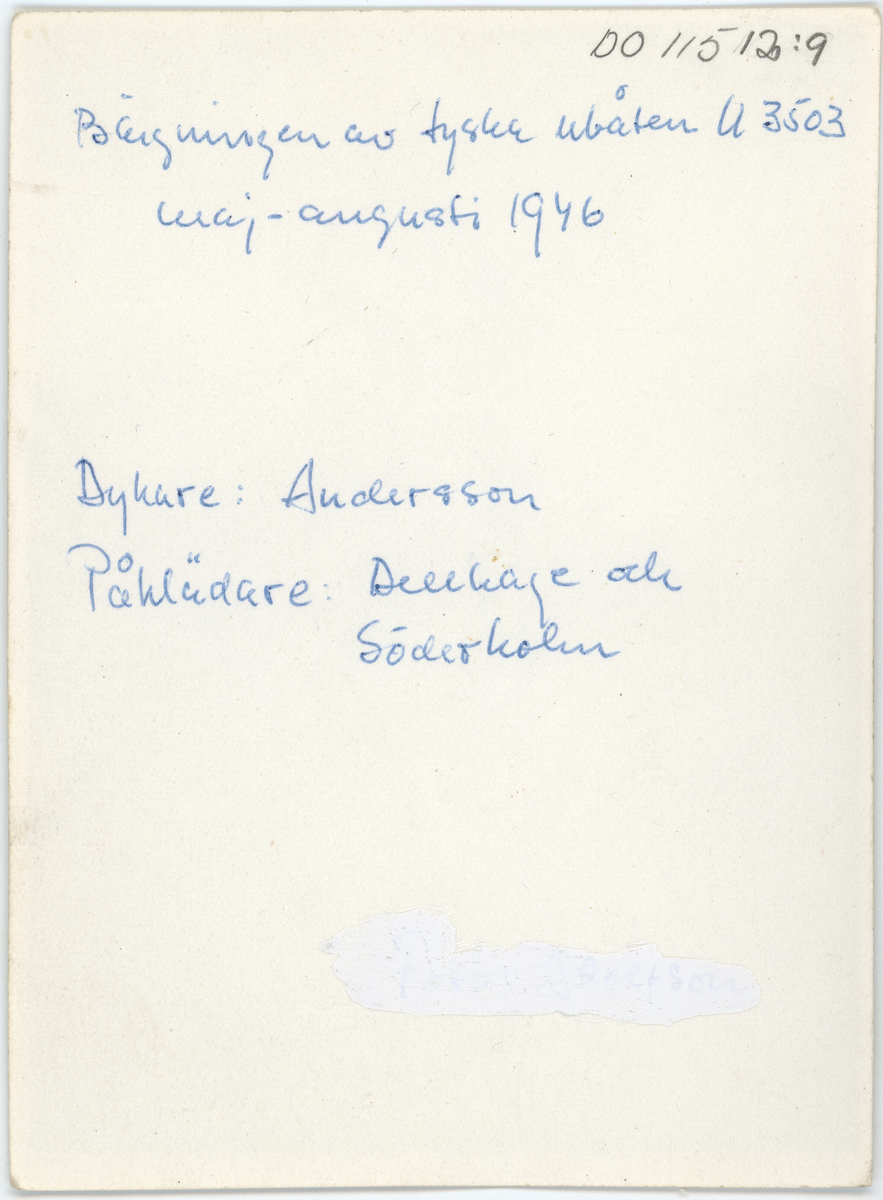 DO 11512:9
Bärgningen av tyska ubåten U 3503
maj-augusti 1946
Dykare: Andersson
Påklädare: Dellhage och
Söderholm